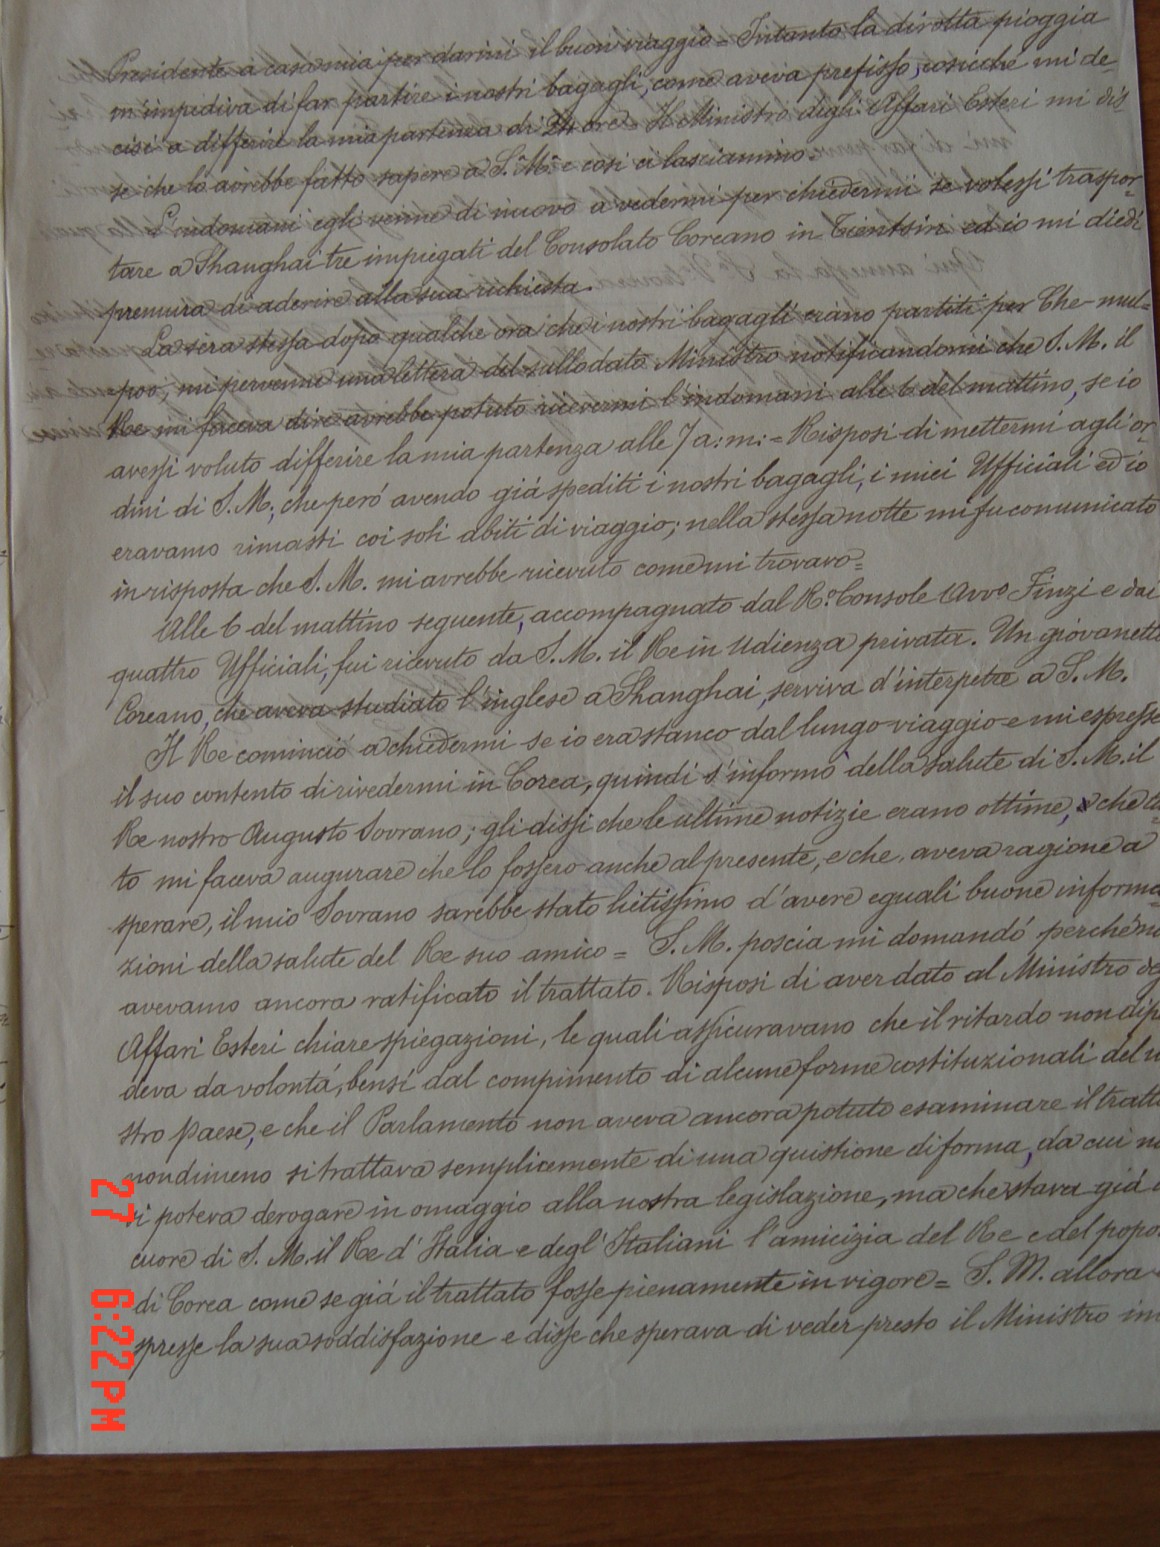 Presidente a casa mia per darmi il buon viaggio = Intanto la dirotta pioggia
m'impediva di far partire i nostri bagagli, come aveva prefisso, cosicché mi de-
cisi a differire la mia partenza di 24 ore. Il Ministro degli Affari Esteri mi dis-
se che lo avrebbe fatto sapere a S. M. e così ci lasciammo.
L'indomani egli venne di nuovo a vedermi per chiedermi se volessi traspor-
tare a Shanghai tre impiegati del Consolato Coreano in Tientsin ed io mi diedi
premura di aderire alla sua richiesta.
La sera stessa dopo qualche ora che i nostri bagagli erano partiti per Che-mul-
poo, mi pervenne una lettera del sullodato Ministro notificandomi che S. M. il
Re mi faceva dire avrebbe potuto ricevermi l'indomani alle 6 del mattino, se io
avessi voluto differire la mia partenza alle 7 a: m: = Risposi di mettermi agli or-
dini di S. M; che però avendo già spediti i nostri bagagli, i miei Ufficiali ed io
eravamo rimasti coi soli abiti di viaggio; nella stessa notte mi fu comunicato
in risposta che S. M. mi avrebbe ricevuto come mi trovavo =
Alle 6 del mattino seguente, accompagnato dal R.º Console Avvº Finzi e dai
quattro Ufficiali, fui ricevuto da S. M. il Re in Udienza privata. Un giovanetto
Coreano, che aveva studiato l'inglese a Shanghai, serviva d'interpetre a S. M.
Il Re cominciò a chiedermi se io era stanco dal lungo viaggio e mi espresse
il suo contento di rivedermi in Corea, quindi s'informò della salute di S. M. il
Re nostro Augusto Sovrano; gli dissi che le ultime notizie erano ottime, e che tu
to mi faceva augurare che lo fossero anche al presente, e che, aveva ragione a
sperare, il mio Sovrano sarebbe stato lietissimo d'avere eguali buone informa
zioni della salute del Re suo amico = S. M. poscia mi domandó perché no
avevamo ancora ratificato il trattato. Risposi di aver dato al Ministro deg
Affari Esteri chiare spiegazioni, le quali assicuravano che il ritardo non dip
deva da volontá, bensí dal compimento di alcune forme costituzionali del n
stro paese, e che il Parlamento non aveva ancora potuto esaminare il tratta
nondimeno si trattava semplicemente di una quistione di forma, da cui no
si poteva derogare in omaggio alla nostra legislazione, ma che stava già
cuore di S. M. il Re d'Italia e degl'Italiani l'amicizia del Re e del popo
di Corea come se già il trattato fosse pienamente in vigore = S. M. allora
spresse la sua soddisfazione e disse che sperava di veder presto il Ministro in
27 6:22 PM